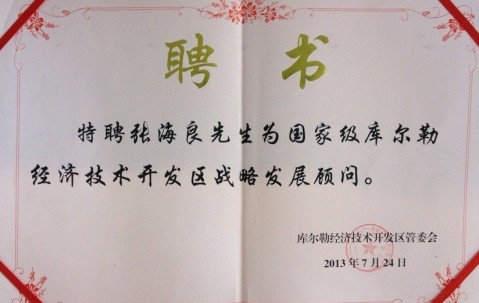 聘书
特聘张海良先生为国家级库尔勒
经济技术开发区战略发展顾问。
库尔勒经济技术开发区管委会
2013年7月24日